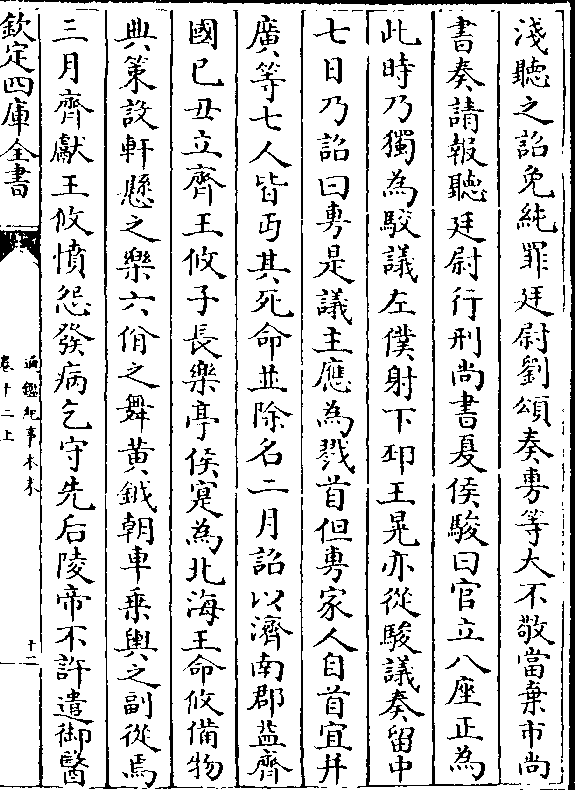 淺聽之詔免純罪廷尉劉頌奏旉等大不敬當棄市尚
書奏請報聽廷尉行刑尚書夏侯駿曰官立八座正為
此時乃獨為駮議左僕射下邳王晃亦從駿議奏留中
七日乃詔曰旉是議主應為戮首但旉家人自首宜并
廣等七人皆丐其死命並除名二月詔以濟南郡益齊
國己丑立齊王攸子長樂亭侯寔為北海王命攸備物
典策設軒懸之樂六佾之舞黃鉞朝車乘輿之副從焉
三月齊獻王攸憤怨發病乞守先后陵帝不許遣御醫
欽定四庫全書
通鑑紀事本末
卷十二上
十二